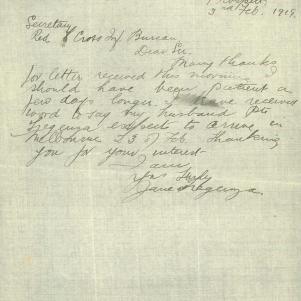 3rd Feb. 1919
Secretary
Red Cross Inf Bureau
Dear Sir.
Many thanks
for letter received this morning I
should have been patient a
few days longer. I have received
word to say my husband Pte
Tregenza expect to arrive in
Melbourne 23 of Feb. Thanking
you for your interest
I am
Yrs Truly
Jane Tregenza.